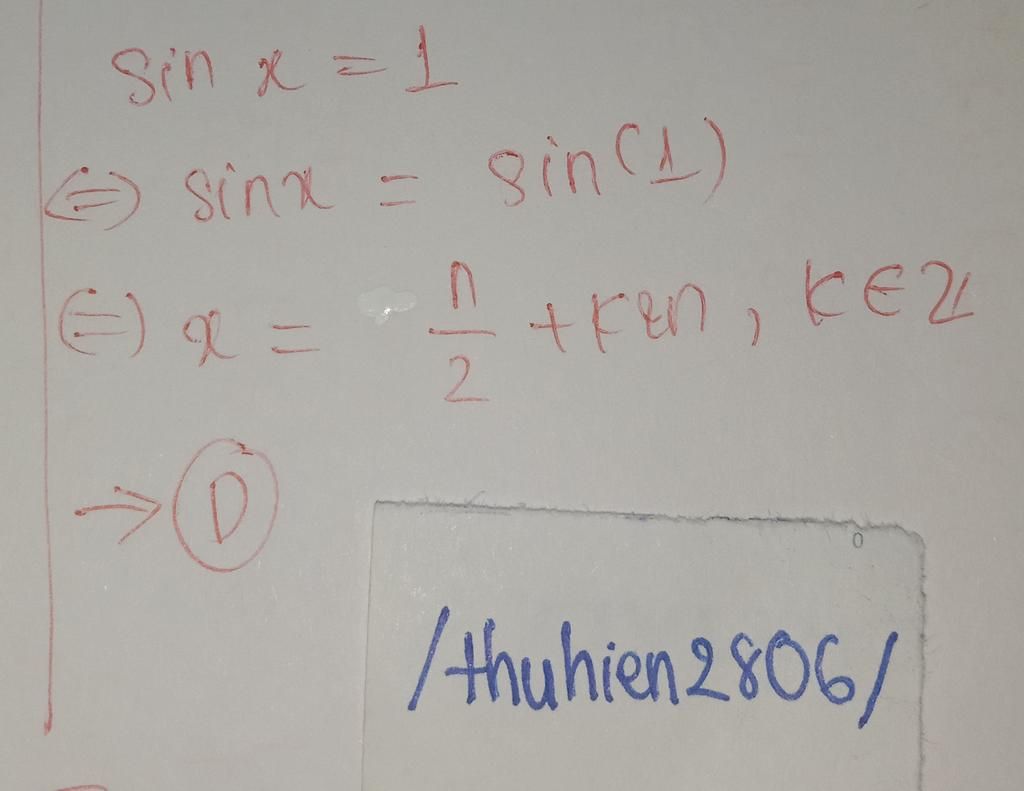 sin x = 1
⇔ sinx = sin(1)
⇔ x = π/2 + k2π, k ∈ Z
→ D
/thuhien2806/